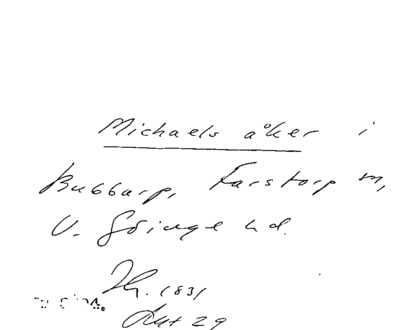 Michaels åker i
Bubbarp, Farstorp sn,
V. Göinge hd.
1831
Akt 29